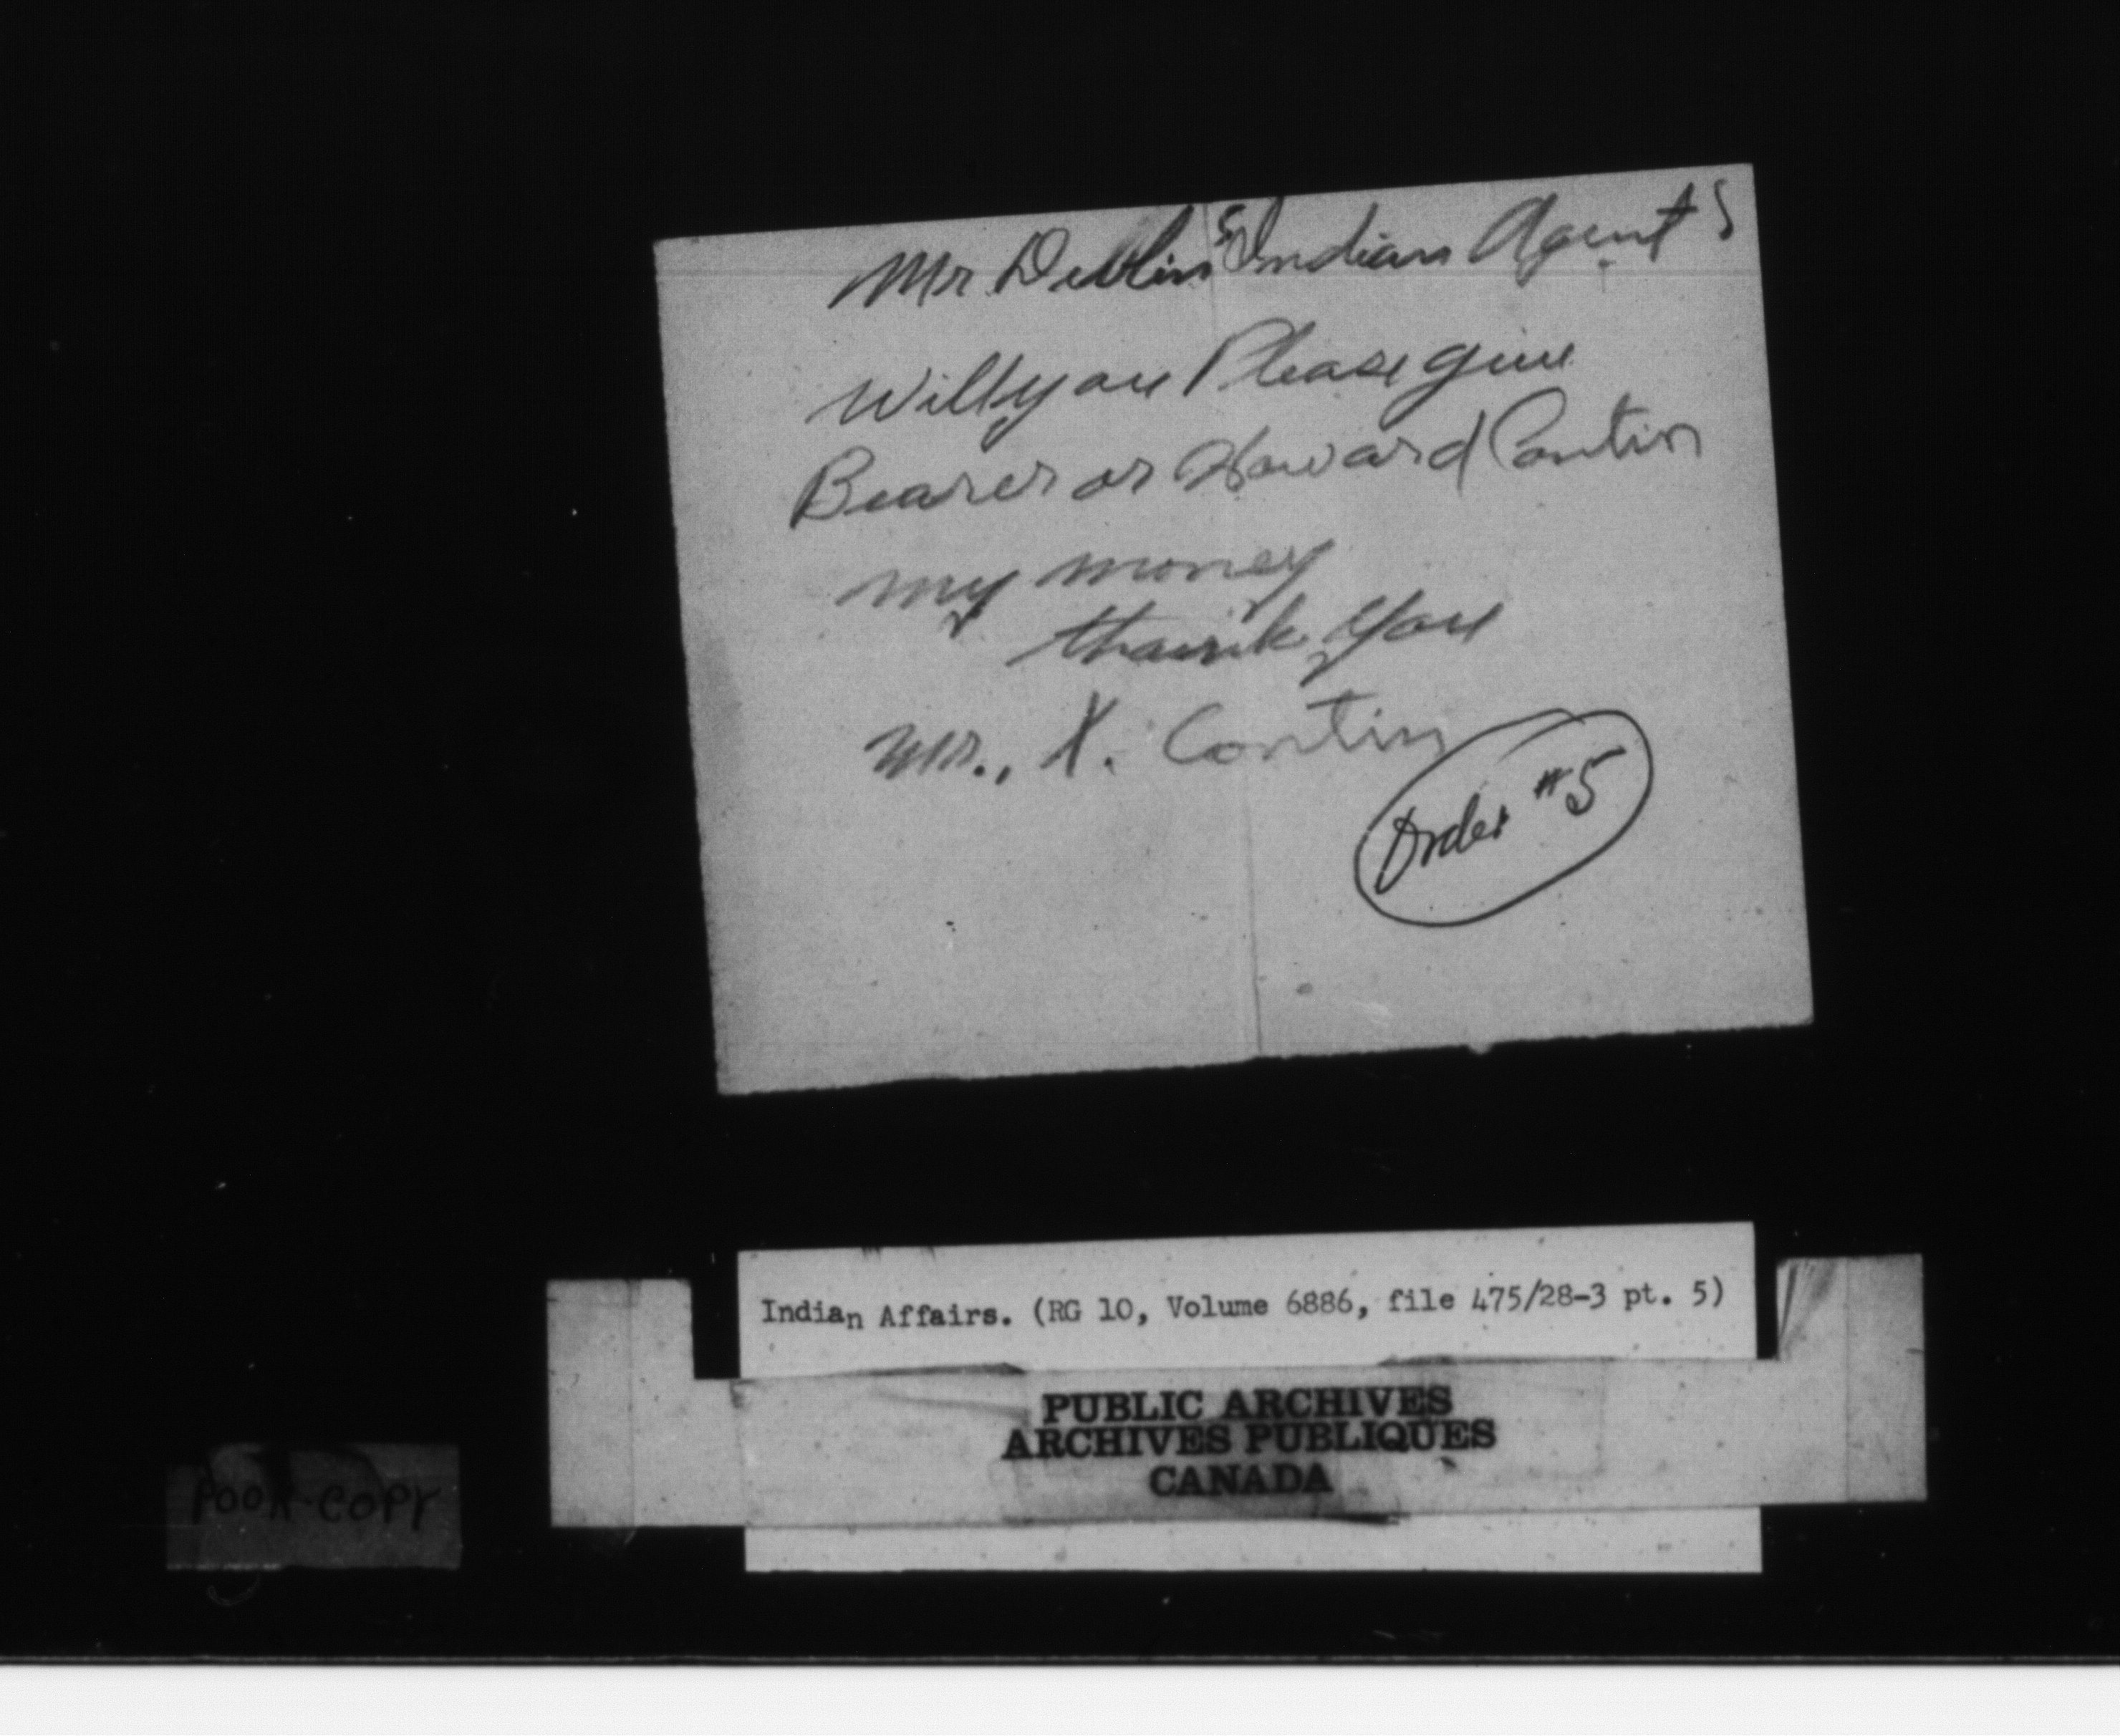 Mr Devlin Indian Agent
Will you Please give
Bearer or Howard Contin
my money
thank you
Mr., X. Contin
Order #5
Indian Affairs. (RG 10, Volume 6886, file 475/28-3 pt. 5)
PUBLIC ARCHIVES
ARCHIVES PUBLIQUES
CANADA
POOR COPY